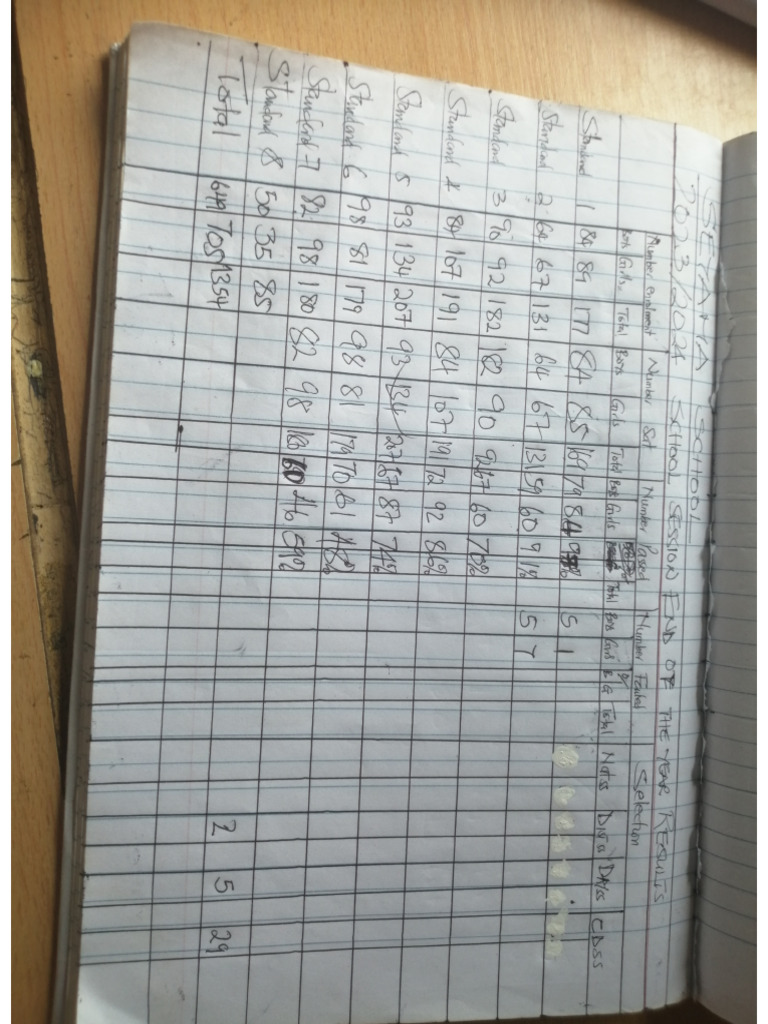 SCHOOL
2023/2024 SCHOOL SESSION END OF THE YEAR RESULTS
Number enrolment Number Sat Number Passed Number Failed Selection
Boys Girls Total Boys Girls Total Boys Girls Total Boys Girls Total Natss DNss DAYss CDSS
Standard 1 89 177 84 85 169 79 84 5 1
Standard 2 64 67 131 64 67 131 59 60 91% 5 7
Standard 3 90 92 182 90 92 67 60 70%
Standard 4 84 107 191 84 107 191 72 92 86%
Standard 5 93 134 207 93 134 207 67 87 74%
Standard 6 98 81 179 98 81 179 70 61
Standard 7 82 98 180 82 98 180 60 46 59%
Standard 8 50 35 85
Total 705 1354 2 5 29